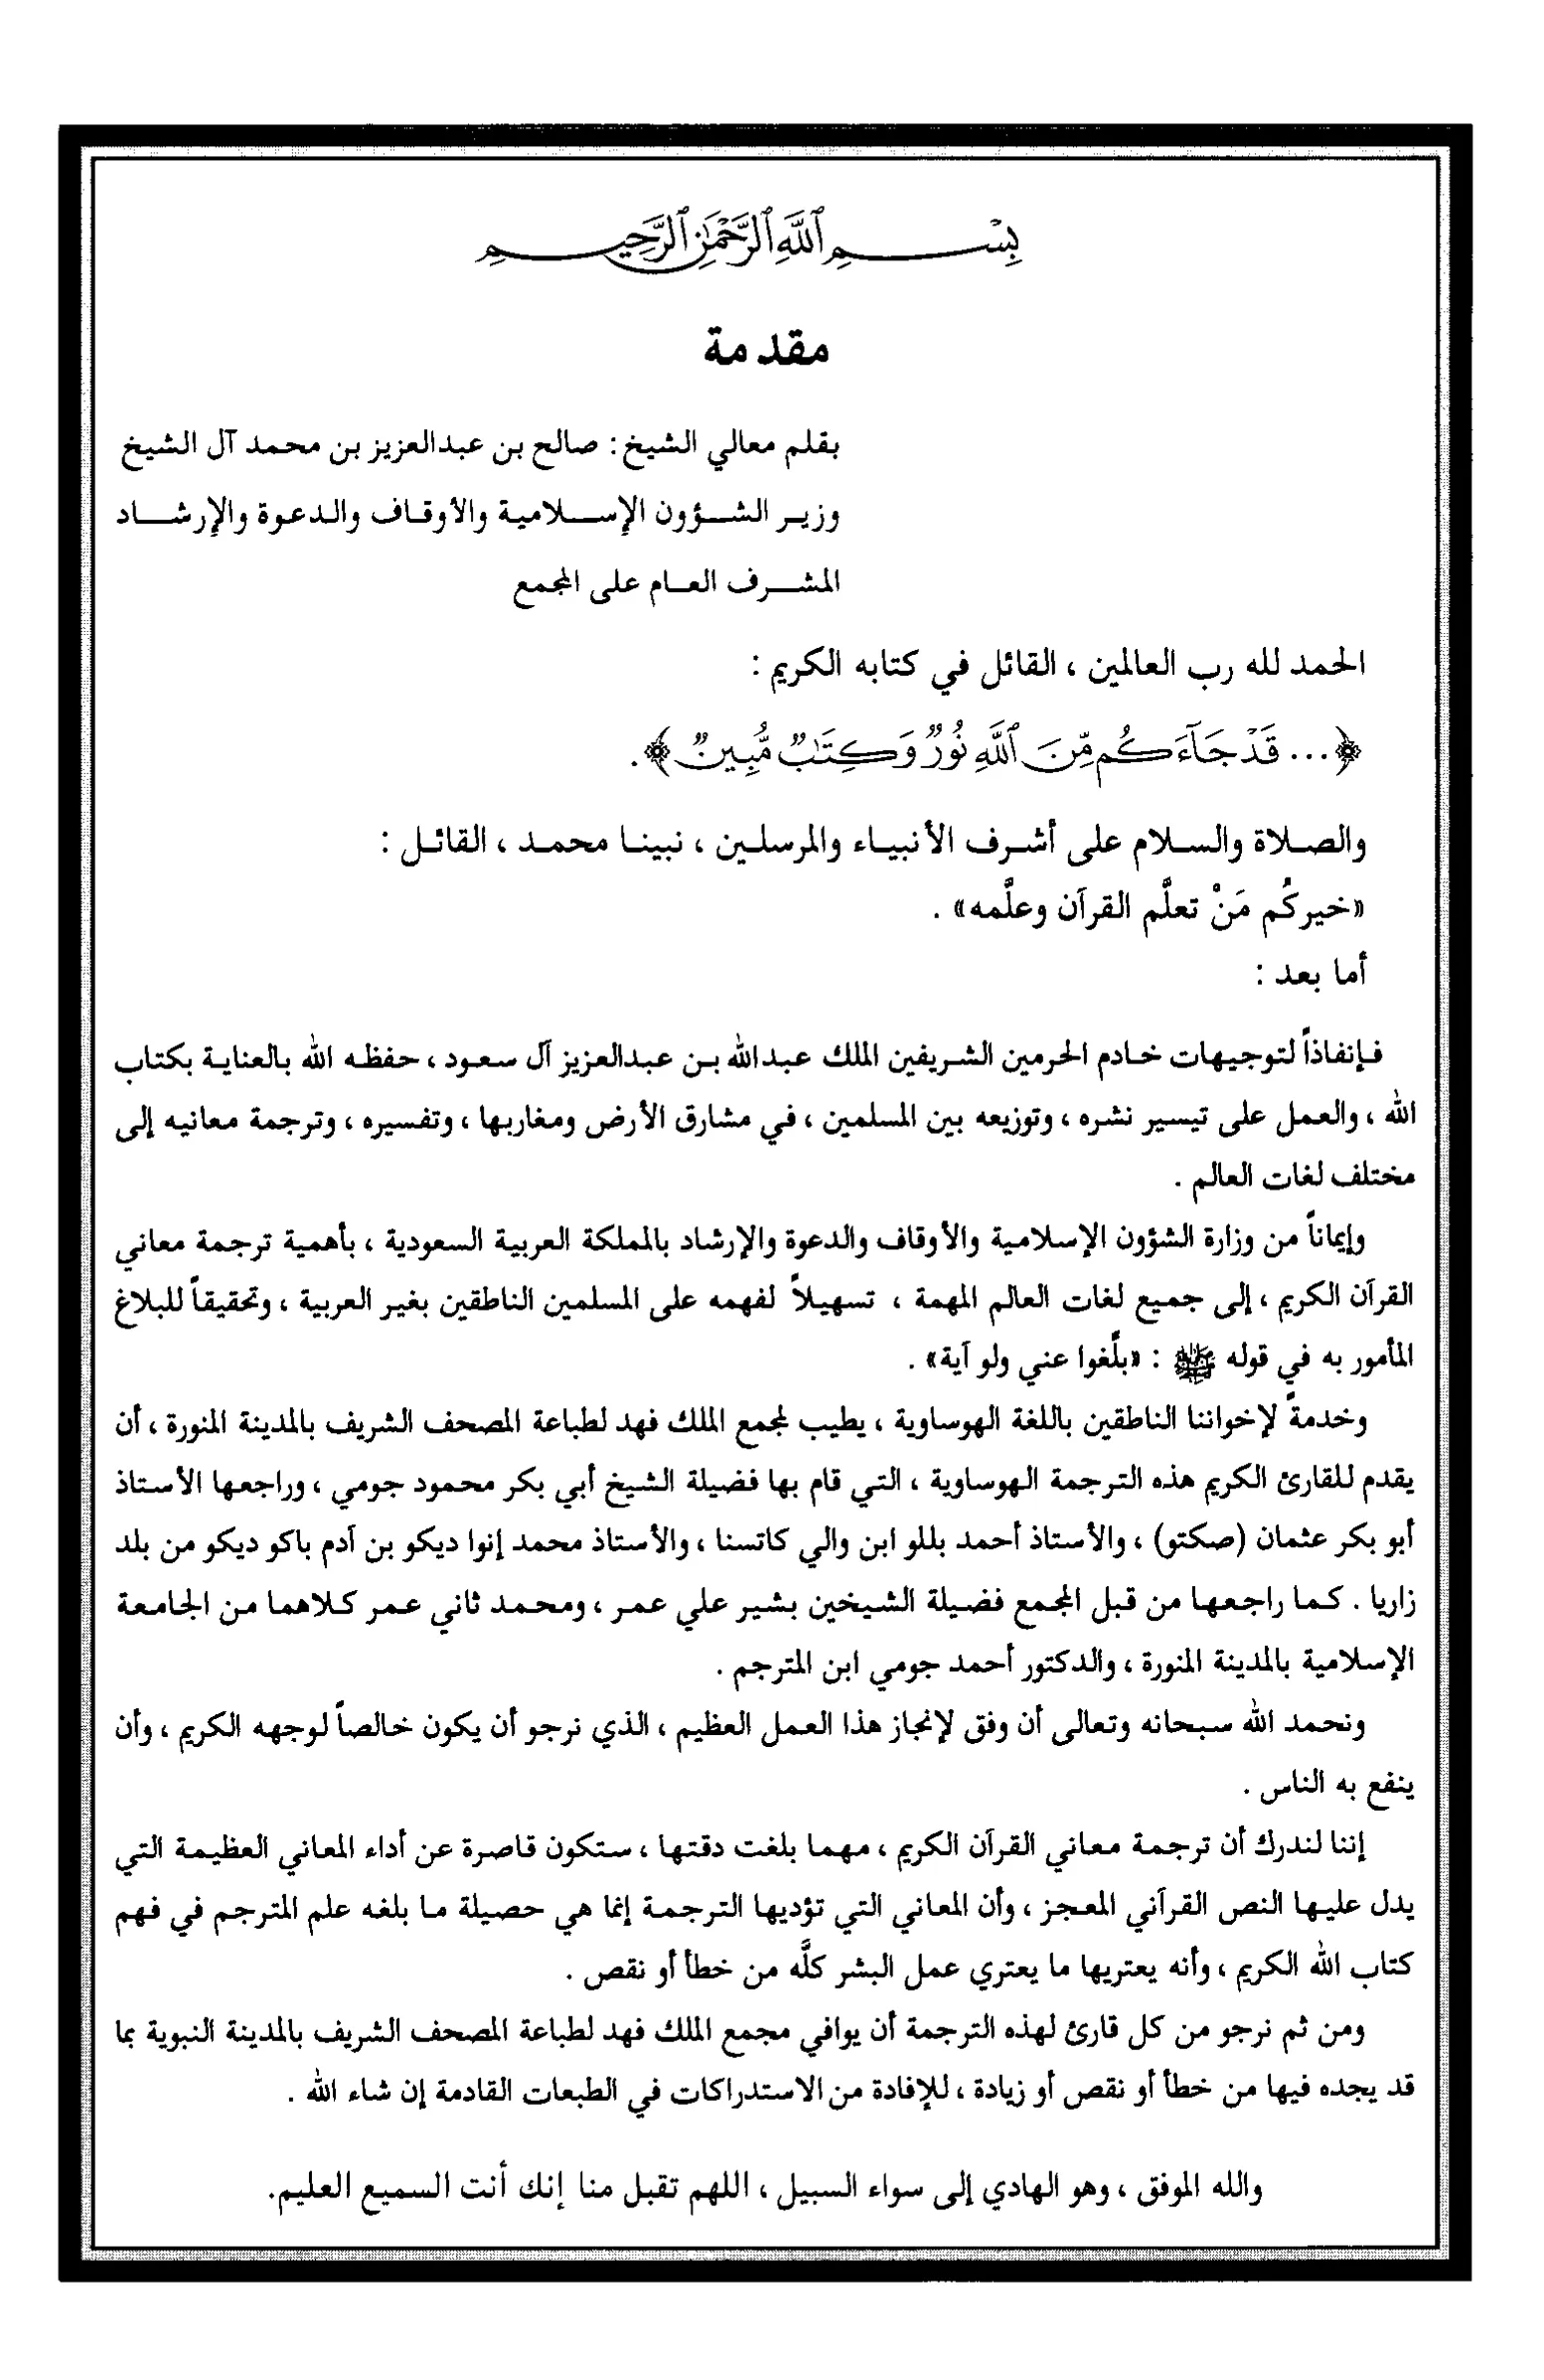 بِسْمِ ٱللَّهِ ٱلرَّحْمَٰنِ ٱلرَّحِيمِ
مقدمة
بقلم معالي الشيخ: صالح بن عبدالعزيز بن محمد آل الشيخ
وزير الشؤون الإسلامية والأوقاف والدعوة والإرشاد
المشرف العام على المجمع
الحمد لله رب العالمين ، القائل في كتابه الكريم :
﴿... قَدْ جَآءَكُم مِّنَ ٱللَّهِ نُورٌ وَكِتَٰبٌ مُّبِينٌ﴾.
والصلاة والسلام على أشرف الأنبياء والمرسلين ، نبينا محمد ، القائل :
«خيركُم مَنْ تعلَّم القرآن وعلَّمه» .
أما بعد :
فإنفاذاً لتوجيهات خادم الحرمين الشريفين الملك عبدالله بن عبدالعزيز آل سعود ، حفظه الله بالعناية بكتاب
الله ، والعمل على تيسير نشره ، وتوزيعه بين المسلمين ، في مشارق الأرض ومغاربها ، وتفسيره ، وترجمة معانيه إلى
مختلف لغات العالم .
وإيماناً من وزارة الشؤون الإسلامية والأوقاف والدعوة والإرشاد بالمملكة العربية السعودية ، بأهمية ترجمة معاني
القرآن الكريم ، إلى جميع لغات العالم المهمة ، تسهيلاً لفهمه على المسلمين الناطقين بغير العربية ، وتحقيقاً للبلاغ
المأمور به في قوله ﷺ : «بلِّغوا عني ولو آية» .
وخدمةً لإخواننا الناطقين باللغة الهوساوية ، يطيب لمجمع الملك فهد لطباعة المصحف الشريف بالمدينة المنورة ، أن
يقدم للقارئ الكريم هذه الترجمة الهوساوية ، التي قام بها فضيلة الشيخ أبي بكر محمود جومي ، وراجعها الأستاذ
أبو بكر عثمان (صكتو) ، والأستاذ أحمد بللو ابن والي كاتسنا ، والأستاذ محمد إنوا ديكو بن آدم باكو ديكو من بلد
زاريا . كما راجعها من قبل المجمع فضيلة الشيخين بشير علي عمر ، ومحمد ثاني عمر كلاهما من الجامعة
الإسلامية بالمدينة المنورة ، والدكتور أحمد جومي ابن المترجم .
ونحمد الله سبحانه وتعالى أن وفق لإنجاز هذا العمل العظيم ، الذي نرجو أن يكون خالصاً لوجهه الكريم ، وأن
ينفع به الناس .
إننا لندرك أن ترجمة معاني القرآن الكريم ، مهما بلغت دقتها ، ستكون قاصرة عن أداء المعاني العظيمة التي
يدل عليها النص القرآني المعجز ، وأن المعاني التي تؤديها الترجمة إنما هي حصيلة ما بلغه علم المترجم في فهم
كتاب الله الكريم ، وأنه يعتريها ما يعتري عمل البشر كلَّه من خطأ أو نقص .
ومن ثم نرجو من كل قارئ لهذه الترجمة أن يوافي مجمع الملك فهد لطباعة المصحف الشريف بالمدينة النبوية بما
قد يجده فيها من خطأ أو نقص أو زيادة ، للإفادة من الاستدراكات في الطبعات القادمة إن شاء الله .
والله الموفق ، وهو الهادي إلى سواء السبيل ، اللهم تقبل منا إنك أنت السميع العليم.